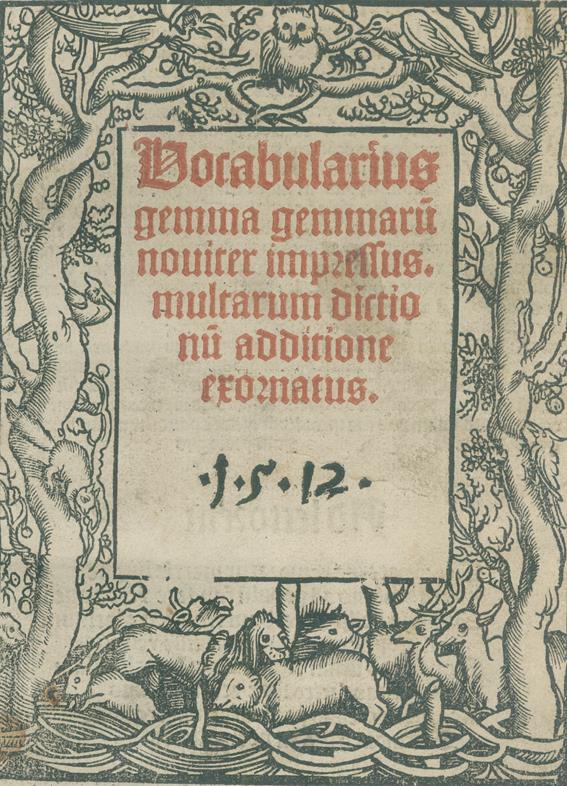 Vocabularius
gemma gemmarū
noviter impressus.
multarum dictio
nū additione
exornatus.
·1·5·12·